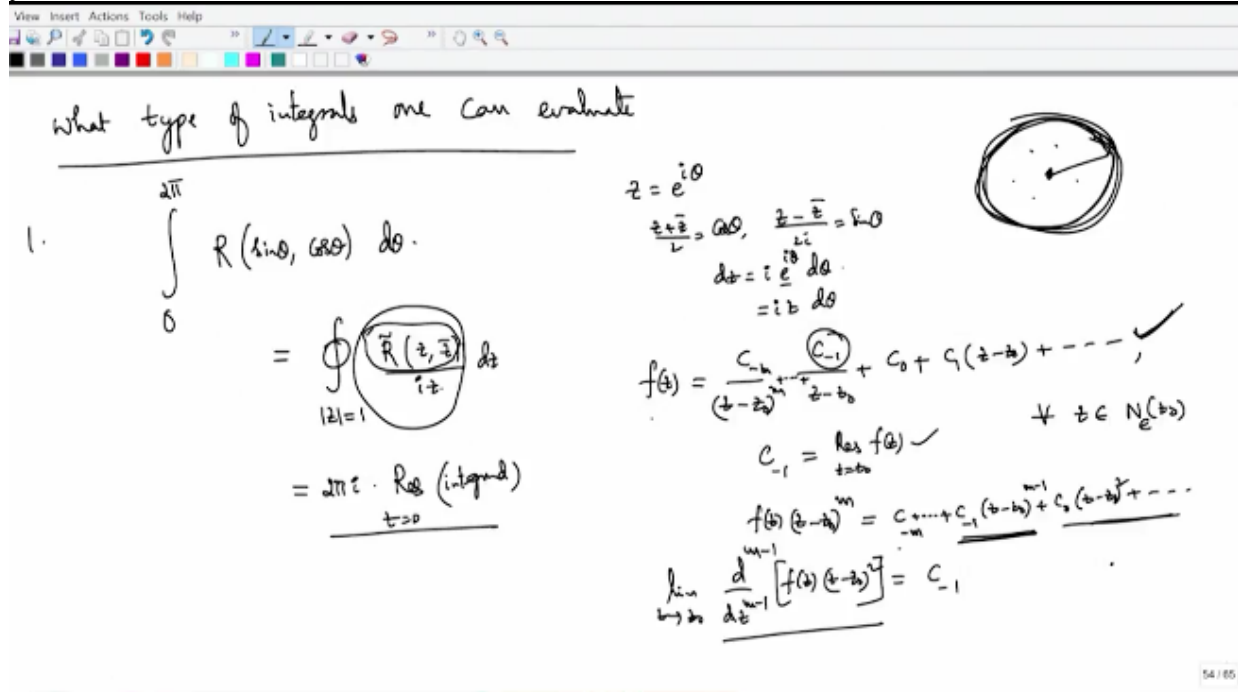 View Insert Actions Tools Help
what type of integrals one can evaluate
1. ∫_0^{2π} R(sinθ, cosθ) dθ.
= ∮_{|z|=1} \frac{R̃(z, z̄)}{iz} dz
= 2πi · Res_{z=0} (integrand)
z = e^{iθ}
\frac{z+z̄}{2} = cosθ, \frac{z-z̄}{2i} = sinθ
dz = i e^{iθ} dθ.
= iz dθ
f(z) = \frac{C_{-m}}{(z-z_0)^m} + ··· + \frac{C_{-1}}{z-z_0} + C_0 + C_1(z-z_0) + ---- ,
∀ z ∈ N_e(z_0)
C_{-1} = Res_{z=z_0} f(z) ✓
f(z) (z-z_0)^m = C_{-m} + ···· + C_{-1}(z-z_0)^{m-1} + C_0(z-z_0)^2 + ----
lim_{z→z_0} \frac{d^{m-1}}{dz^{m-1}} [f(z) (z-z_0)^2] = C_{-1}
54 / 65